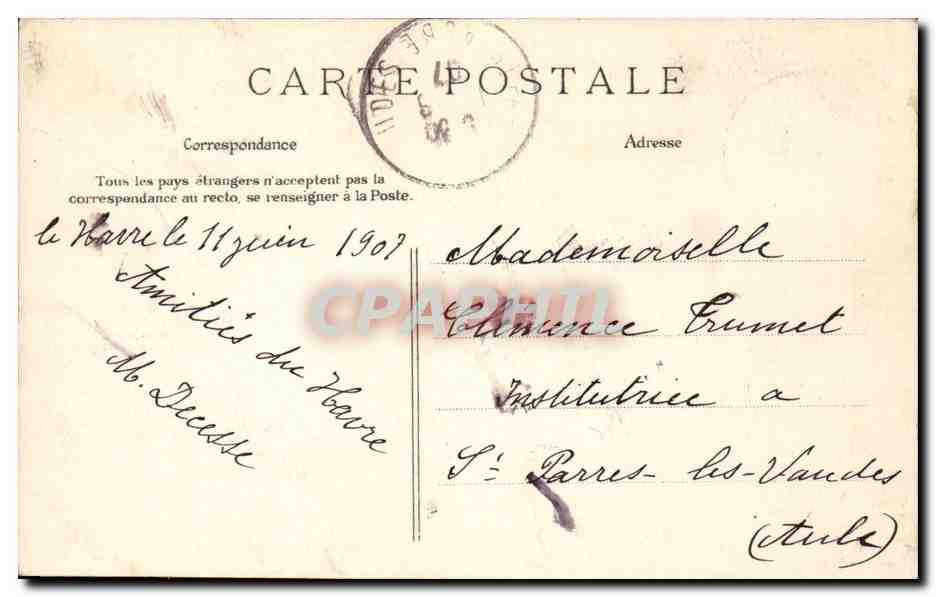 CARTE POSTALE
Correspondance
Adresse
Tous les pays étrangers n'acceptent pas la
correspondance au recto, se renseigner à la Poste.
le Havre le 11 juin 1907
Amitiés du Havre
M. Decesse
Mademoiselle
Clémence Trumet
Institutrice a
St Parres-les-Vaudes
(Aube)
CPAPHIL